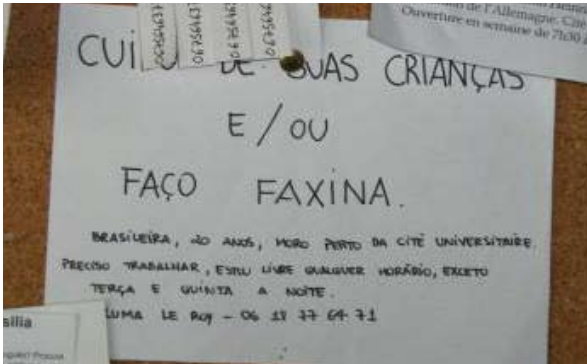 067564637
06756463
0675646
067564
de l'Allemagne. Cité
Ouverture en semaine de 7h30
CUI DE SUAS CRIANÇAS
E / OU
FAÇO FAXINA.
BRASILEIRA, 20 ANOS, MORO PERTO DA CITÉ UNIVERSITAIRE.
PRECISO TRABALHAR, ESTOU LIVRE QUALQUER HORÁRIO, EXCETO
TERÇA E QUINTA A NOITE.
LUMA LE ROY - 06 18 77 64 71
silia